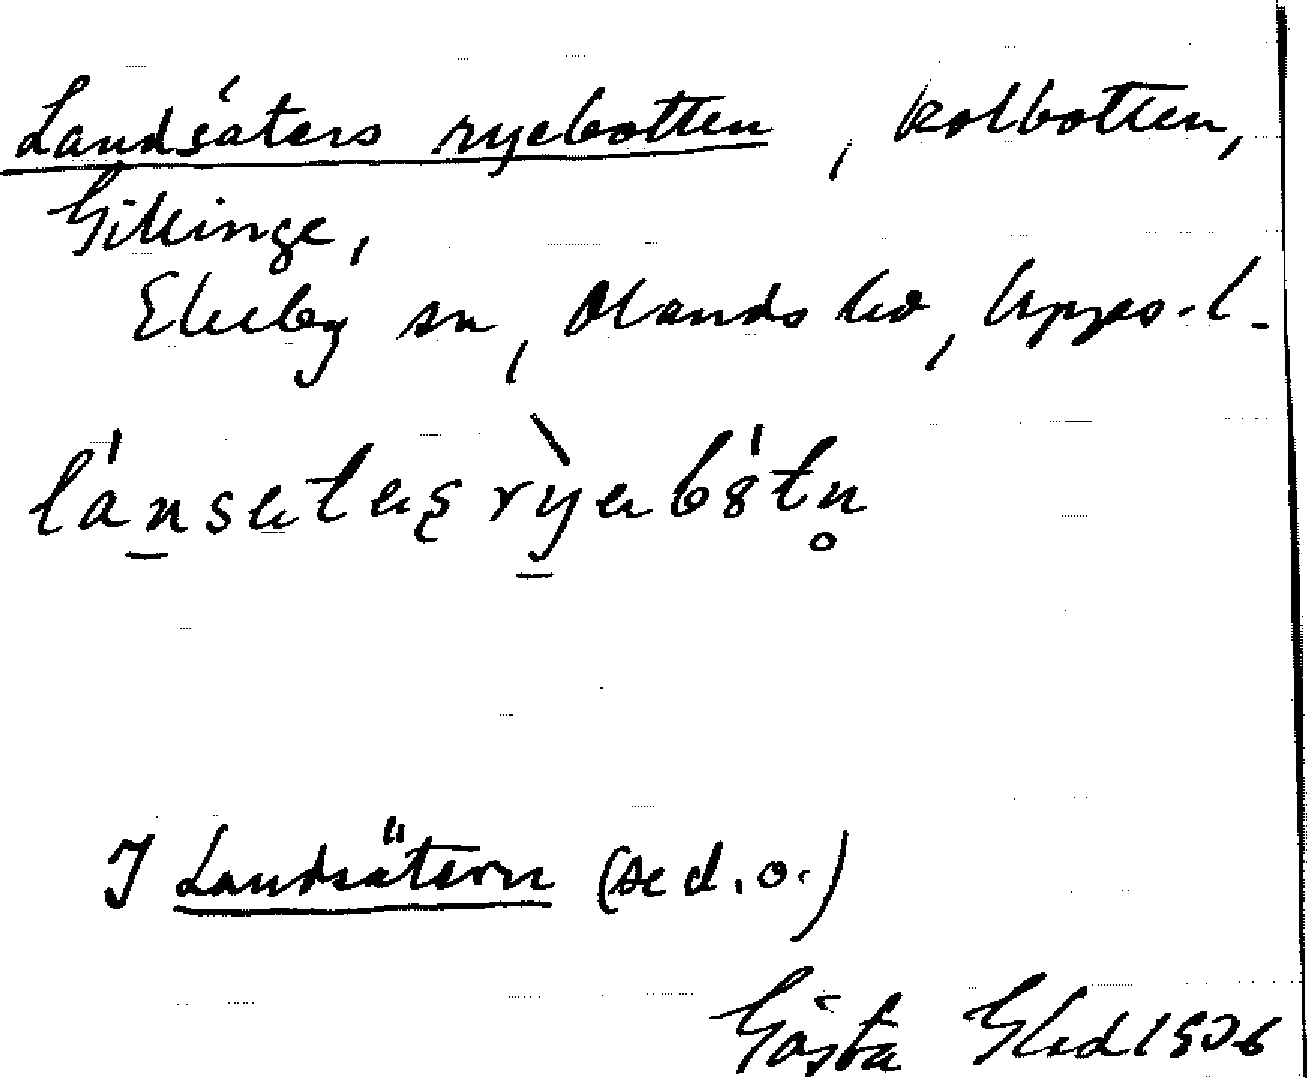 Landsäters ryebotten, kolbotten,
Gillinge,
Ekeby sn, Olands hd, Upps. l.
lánsetes rỳebótn̥
I Landsätern (se d. o.)
Gösta Gled 1926